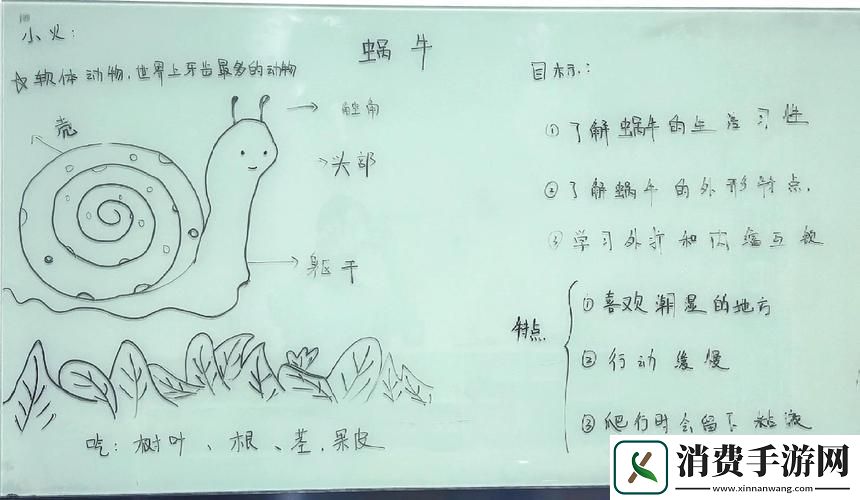 小火：
蜗牛
☆软体动物，世界上牙齿最多的动物
壳
触角
头部
躯干
吃：树叶、根、茎、果皮
目标：
①了解蜗牛的生活习性
②了解蜗牛的外形特点.
③学习外折和内缩
特点
①喜欢潮湿的地方
②行动缓慢
③爬行时会留下粘液
消费手游网
www.xinnanwang.com